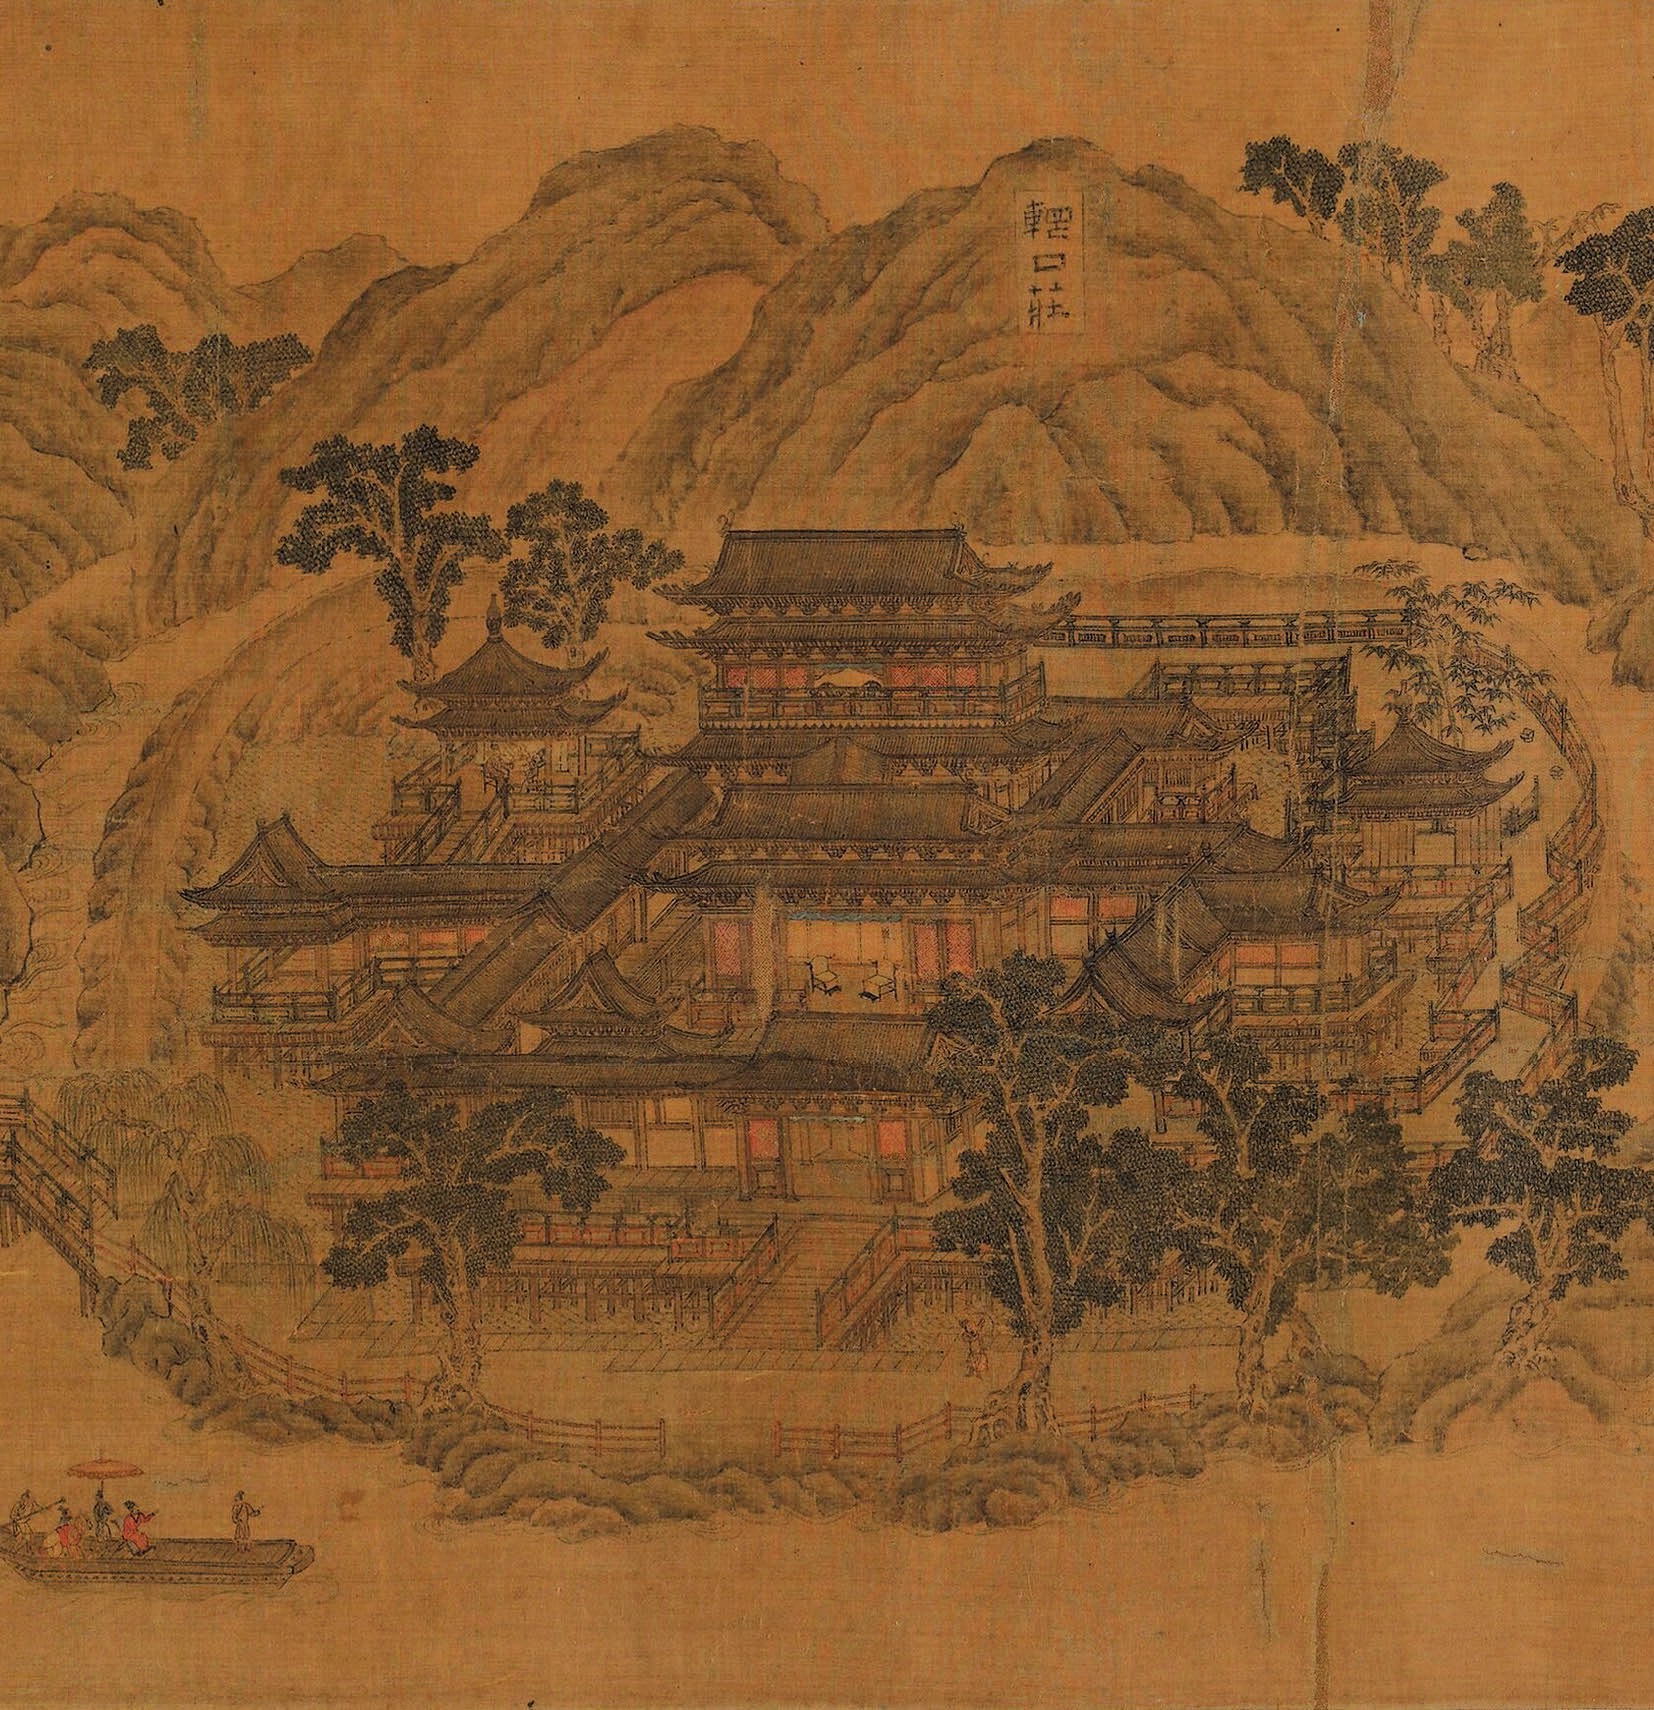 輞口莊